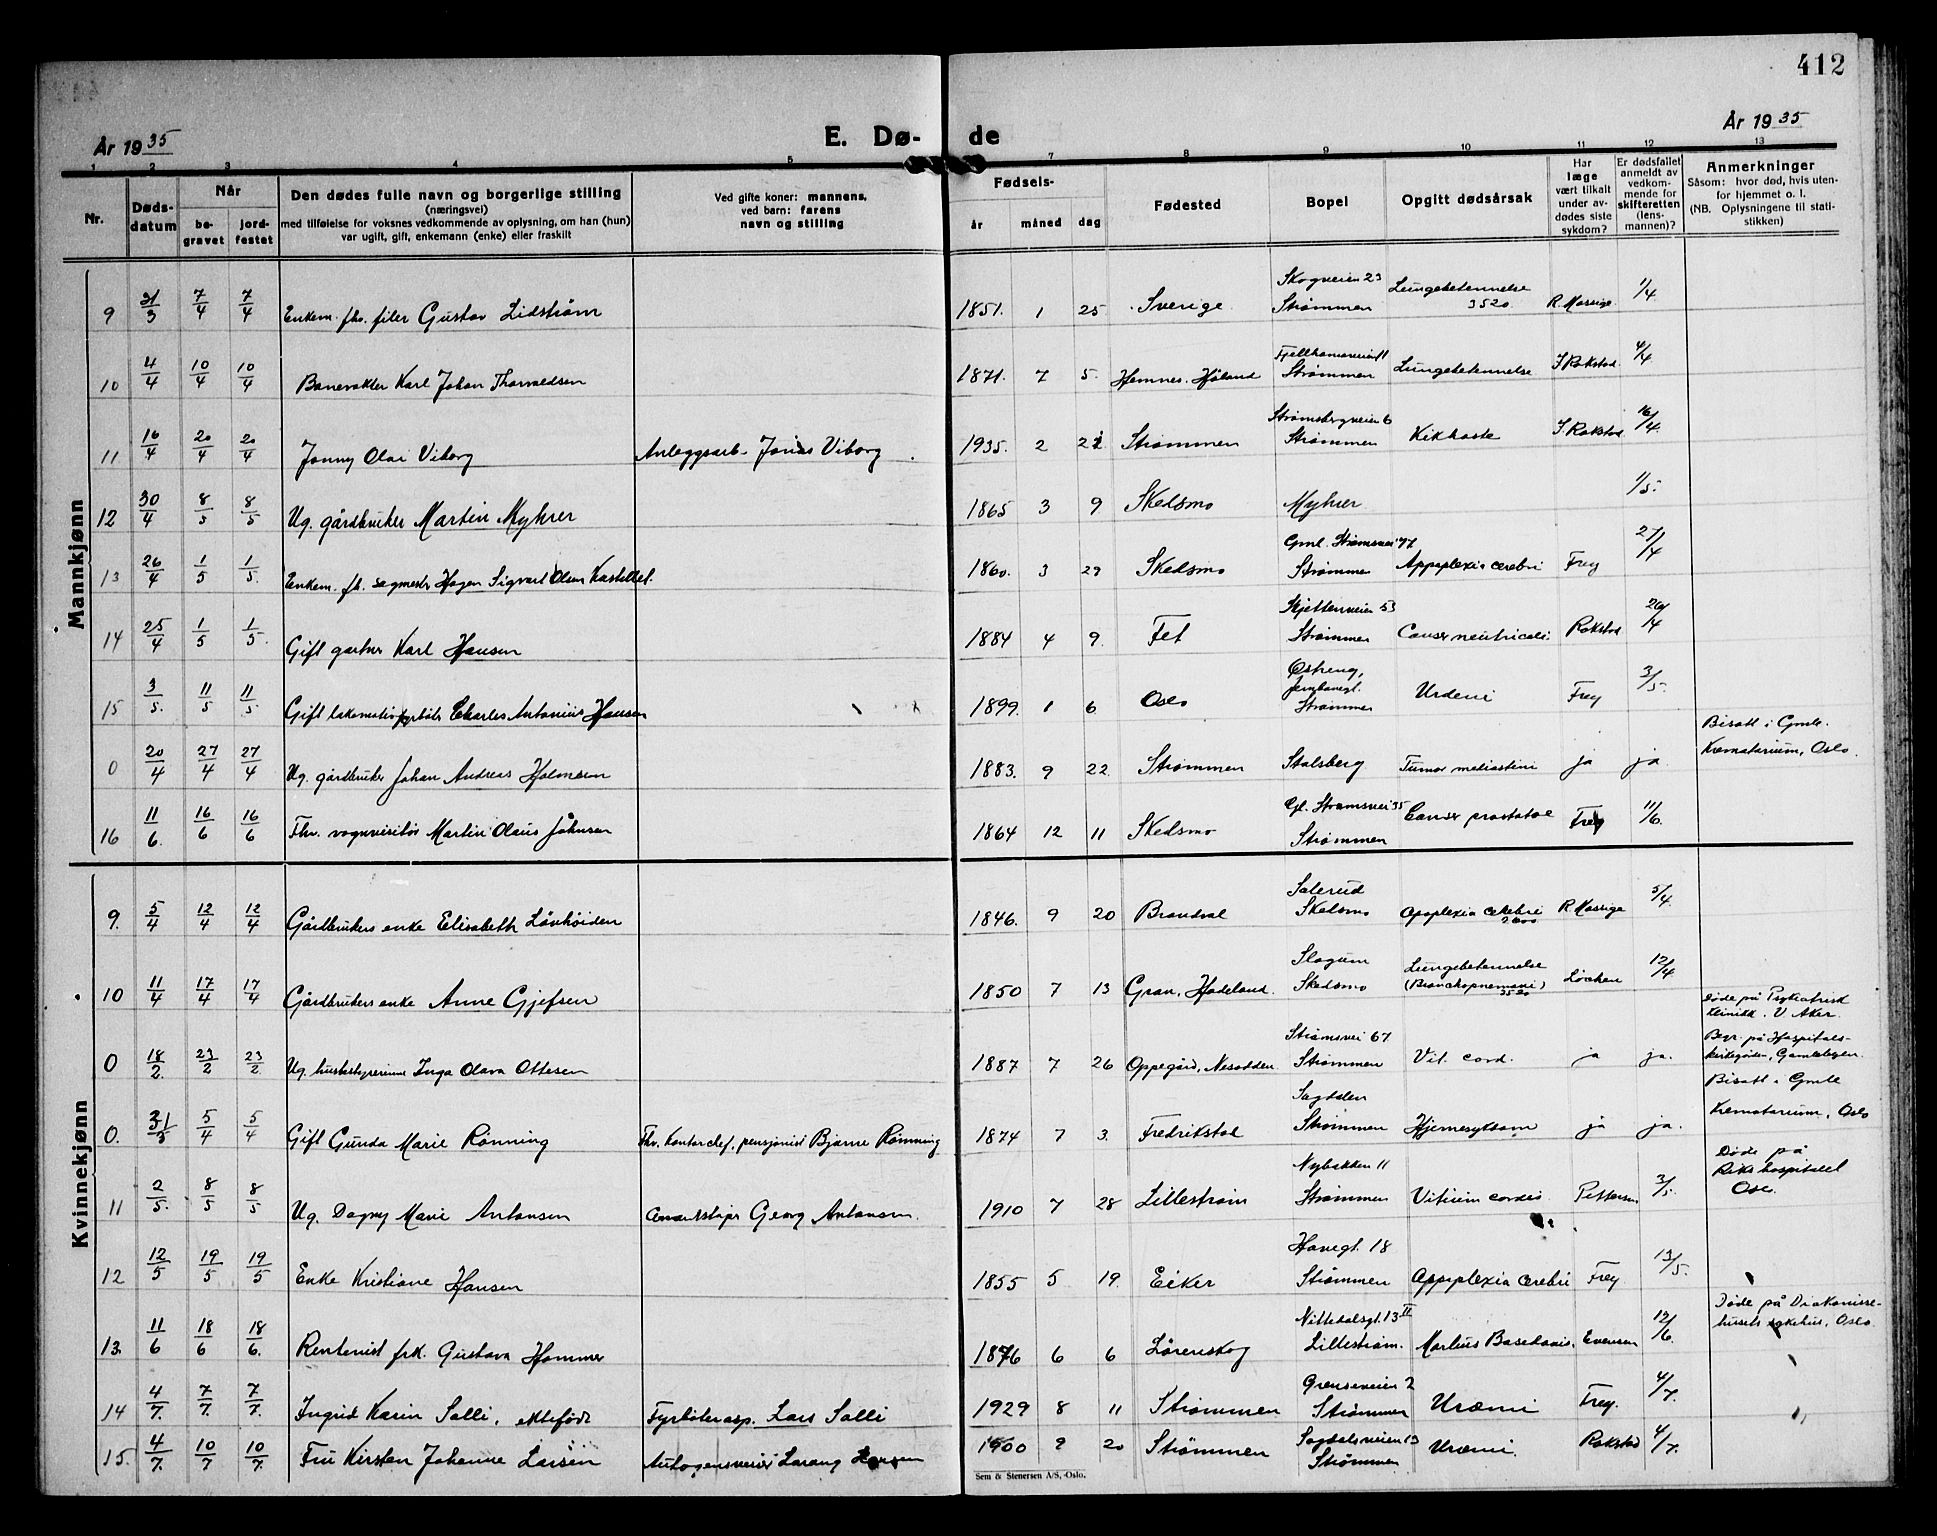 412
År 1935
E. Dø- de
År 1935
1 2 3 4 5 7 8 9 10 11 12 13
Nr.
Døds-
datum
Når
be-
gravet
jord-
festet
Den dødes fulle navn og borgerlige stilling
(næringsvei)
med tilføielse for voksnes vedkommende av oplysning, om han (hun)
var ugift, gift, enkemann (enke) eller fraskilt
Ved gifte koner: mannens,
ved barn: farens
navn og stilling
Fødsels-
år måned dag
Fødested
Bopel
Opgitt dødsårsak
Har
læge
vært tilkalt
under av-
dødes siste
sykdom?
Er dødsfallet
anmeldt av
vedkom-
mende for
skifteretten
(lens-
mannen)?
Anmerkninger
Såsom: hvor død, hvis uten-
for hjemmet o. l.
(NB. Oplysningene til stati-
stikken)
Mannkjønn
9 31/3 7/4 7/4 Enkem. fhv. filer Gustav Lidstrøm 1851. 1 25 Sverige Skogveien 23 Strømmen Lungebetennelse 3520 R. Massige 1/4
10 4/4 10/4 10/4 Banevakter Karl Johan Thorvaldsen 1871. 7 5. Hemnes. Høland Fjellhamarveien 11 Strømmen Lungebetennelse J. Rakstad 4/4
11 16/4 20/4 20/4 Jonny Olai Viborg Anleggsarb. Jonas Viborg 1935. 2 Strømmen Strømsbergveien 6 Strømmen Kikhoste J. Rakstad 16/4
12 30/4 8/5 8/5 Ug. gårdbruker Martin Myhrer 1865 3 9 Skedsmo Myhrer 1/5.
13 26/4 1/5 1/5. Enkem. fh. sagmester Hagen Sigvart Olsen Kastellet. 1860. 3 29 Skedsmo Gml. Strømsvei 77 Strømmen Appoplexia cerebri Frey 27/4
14 25/4 1/5 1/5. Gift gartner Karl Hansen 1884 4 9. Fet Skjettenveien 53 Strømmen Cancer neutricoli Rakstad 26/4
15 3/5. 11/5 11/5 Gift lokomotivfyrbøter Charles Antonius Hansen 1899. 1 6 Oslo Østreng, Jernbanegt. Strømmen Urdemi Frey 3/5.
0 20/4 27/4 27/4 Ug. gårdbruker Johan Andreas Holmsen 1883. 9 22. Strømmen Stalsberg Tumor mediastini ja ja. Bisatt i Gmle. Krematorium, Oslo.
16 11/6. 16/6 16/6 Fhv. vognvisitør Martin Olaus Johnsen 1864 12 11 Skedsmo Gl. Strømsvei 35 Strømmen Cancer prostatae Frey 11/6.
Kvinnekjønn
9. 5/4 12/4 12/4 Gårdbrukers enke Elisabeth Låvhøiden 1846. 9 20 Brandval Salerud Skedsmo Apoplexia cerebri 2600 R. Massige 5/4.
10 11/4 17/4 17/4 Gårdbrukers enke Anne Gjefsen 1850 7 13 Gran, Hadeland. Slogum Skedsmo Lungebetennelse (Bronchopnemoni) 3520 Løchen 12/4
0 18/2. 23/2 23/2 Ug. husbestyrerinne Inga Olava Ottesen 1887 7 26 Oppegård, Nesodden. Strømsvei 67 Strømmen Vit. cord. ja ja. Døde på Psykiatrisk klinikk. V. Aker. Begr. på Hospitals-kirkegården, Gamlebyen.
0. 31/3 5/4 5/4 Gift Gunda Marie Rønning Fhv. Kontorchef, pensjonist Bjarne Rønning 1874 7 3. Fredrikstad Sagdalen Strømmen Hjernesykdom ja ja. Bisatt i Gmle Krematorium, Oslo
11 2/5. 8/5 8/5 Ug. Dagny Marie Antonsen Georg Antonsen. 1910 7 28 Lillestrøm Nybakken 11 Strømmen Vitium cordis Pettersen 3/5. Døde på Rikshospitalet Oslo.
12 12/5 19/5 19/5 Enke Kristiane Hansen 1855 5 19. Eiker Havegt. 18 Strømmen Appoplexia cerebri Frey 13/5.
13. 11/6 18/6 18/6. Rentenist frk. Gustava Hammer 1876 6 6 Lørenskog Nittedalsgt. 13 II Lillestrøm. Morbus Basedowii. Evensen 12/6. Døde på Diakonisse-husets sykehus, Oslo.
14 4/7. 7/7. 7/7. Ingrid Karin Solli, ektefødt Fyrbøterasp. Lars Solli 1929 8 11 Strømmen Grenseveien 2 Strømmen Uræmi Frey. 4/7.
15. 4/7. 10/7 10/7. Fru Kirsten Johanne Larsen Autogensveiser 1900 9 20 Strømmen Sagdalsveien 13 Strømmen Uræmi. Rakstad 4/7.
Sem & Stenersen A/S, Oslo.